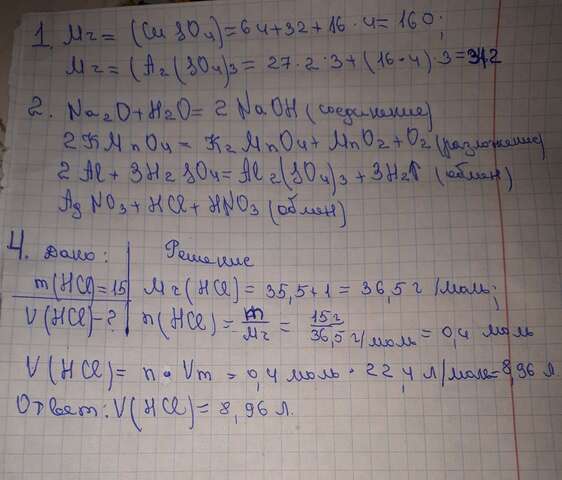 1. Mr = (CuSO4) = 64+32+16·4 = 160;
Mr = (A2(SO4)3 = 27·2·3+(16·4)·3=342
2. Na2O+H2O= 2 NaOH (соединение)
2KMnO4 = K2MnO4+MnO2+O2 (разложение)
2Al + 3H2SO4=Al2(SO4)3+3H2↑ (обмен)
AgNO3+HCl+HNO3 (обмен)
4. Дано: Решение
m(HCl)=15 Mr(HCl)=35,5+1=36,5 г/моль;
V(HCl)-? n(HCl)= m/Mr = 15 г/36,5 г/моль = 0,4 моль
V(HCl)= n·Vm = 0,4 моль · 22,4 л/моль=8,96 л.
Ответ: V(HCl)=8,96 л.